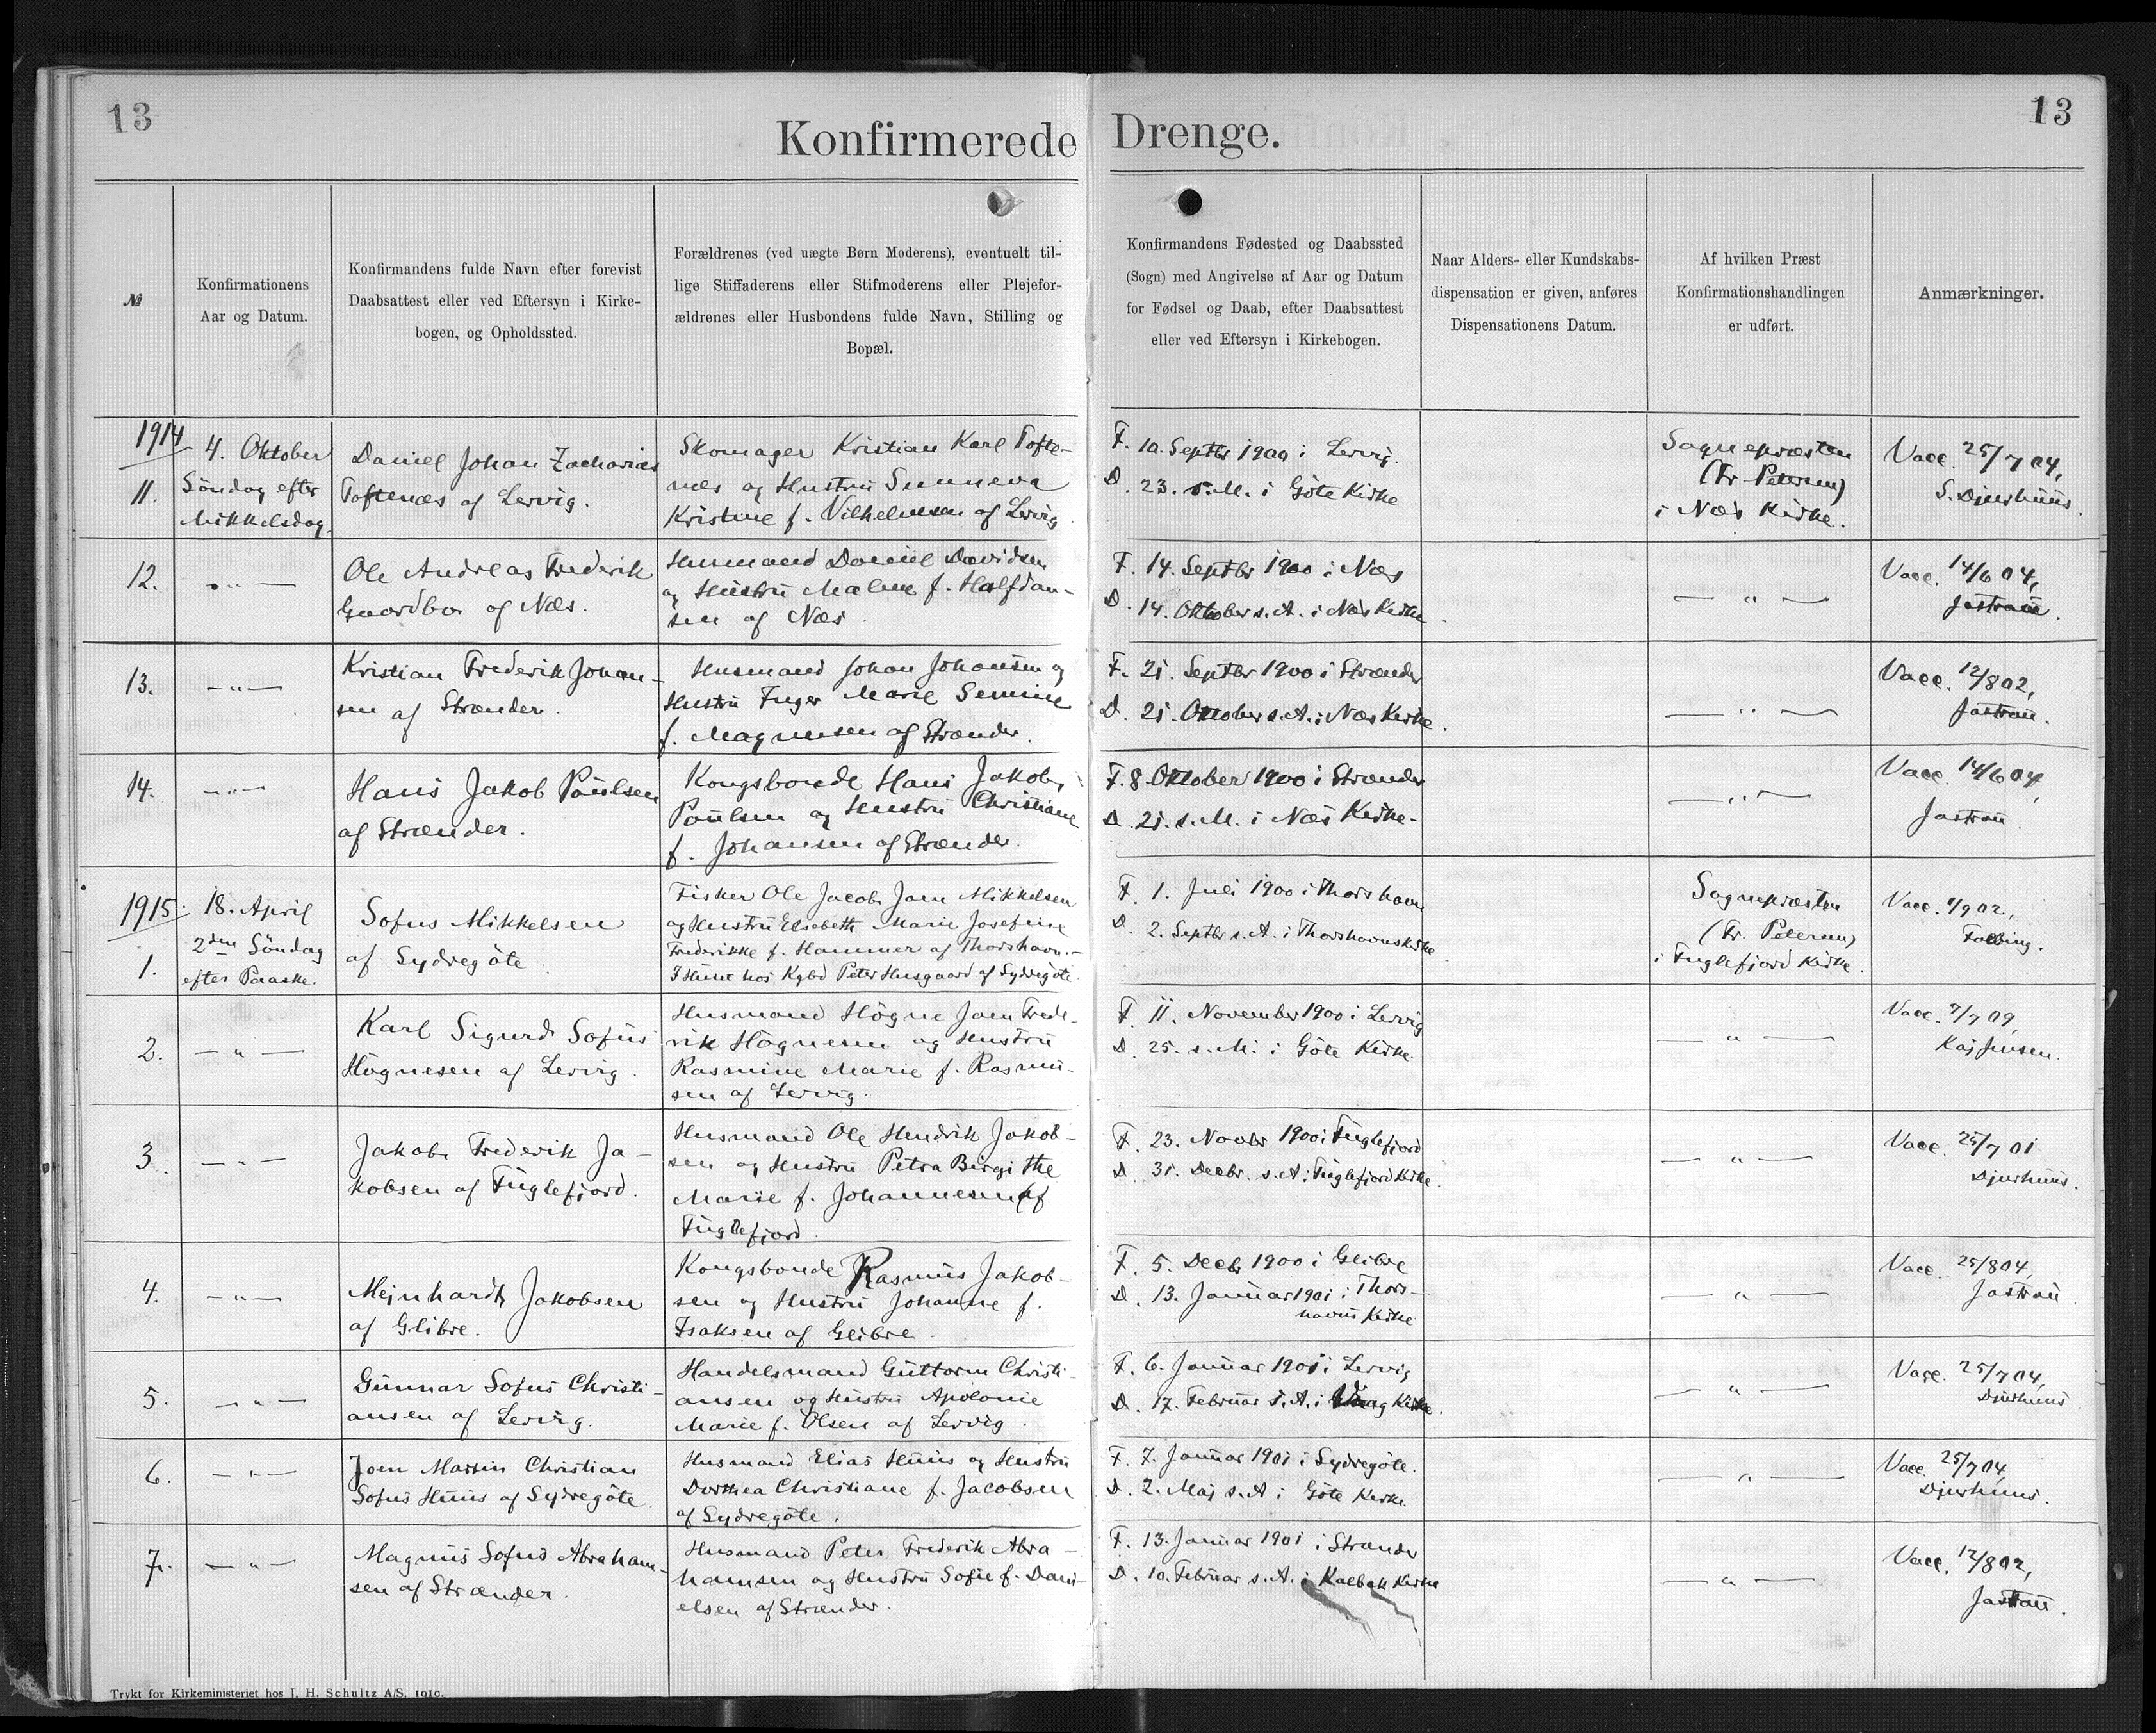 13
13
Konfirmerede Drenge.
№
Konfirmationens
Aar og Datum.
Konfirmandens fulde Navn efter forevist
Daabsattest eller ved Eftersyn i Kirke-
bogen, og Opholdssted.
Forældrenes (ved uægte Børn Moderens), eventuelt til-
lige Stiffaderens eller Stifmoderens eller Plejefor-
ældrenes eller Husbondens fulde Navn, Stilling og
Bopæl.
Konfirmandens Fødested og Daabssted
(Sogn) med Angivelse af Aar og Datum
for Fødsel og Daab, efter Daabsattest
eller ved Eftersyn i Kirkebogen.
Naar Alders- eller Kundskabs-
dispensation er given, anføres
Dispensationens Datum.
Af hvilken Præst
Konfirmationshandlingen
er udført.
Anmærkninger.
1914
11.
4. Oktober
Söndag efter
Mikkelsdag
Daniel Johan Zacharias
Toftenæs af Lervig.
Skomager Kristian Karl Tofte-
næs og Hustru Sunneva
Kristine f. Vilhelmsen af Lervig.
F. 10. Septbr 1900 i Lervig.
D. 23. s. M. i Göte Kirke
Sognepræsten
(Fr. Petersen)
i Næs Kirke.
Vacc. 25/7 04,
S. Djurhuus.
12.
-„-
Ole Andreas Frederik
Gaardbo af Næs.
Husmand Daniel Davidsen
og Hustru Malene f. Halfdan-
sen af Næs.
F. 14. Septbr 1900 i Næs
D. 14. Oktober s. A. i Næs Kirke.
— „ —
Vacc. 14/6 04,
Jastrau.
13.
-„-
Kristian Frederik Johan-
sen af Strænder.
Husmand Johan Johansen og
Hustru Inger Marie Semine
f. Magnusen af Strænder.
F. 21. Septbr 1900 i Strænder
D. 21. Oktober s. A. i Næs Kirke.
— „ —
Vacc. 12/8 02,
Jastrau.
14.
-„-
Hans Jakob Poulsen
af Strænder.
Kongsbonde Hans Jakob
Poulsen og Hustru Christiane
f. Johansen af Strænder.
F. 8. Oktober 1900 i Strænder
D. 21. s. M. i Næs Kirke.
— „ —
Vacc. 14/6 04,
Jastrau.
1915
1.
18. April
2den Söndag
efter Paaske.
Sofus Mikkelsen
af Sydregöte.
Fisker Ole Jacob Joen Mikkelsen
og Hustru Elsebeth Marie Josefine
Frederikke f. Hammer af Thorshavn.-
I Huset hos Kgbd Peter Husgaard af Sydregöte.
F. 1. Juli 1900 i Thorshavn
D. 2. Septbr s. A. i Thorshavns Kirke.
Sognepræsten
(Fr. Petersen)
i Fuglefjord Kirke.
Vacc. 1/9 02,
2.
— „ —
Karl Sigurd Sofus
Högnesen af Lervig.
Husmand Högne Joen Frede-
rik Högnesen og Hustru
Rasmine Marie f. Rasmu-
sen af Lervig.
F. 11. November 1900 i Lervig
D. 25. s. M. i Göte Kirke.
— „ —
Vacc. 7/7 09,
Kaj Jensen.
3.
— „ —
Jakob Frederik Ja-
kobsen af Fuglefjord.
Husmand Ole Hendrik Jakob-
sen og Hustru Petra Birgithe
Marie f. Johannesen af
Fuglefjord.
F. 23. Novbr 1900 i Fuglefjord
D. 31. Decbr. s. A. i Fuglefjord Kirke.
— „ —
Vacc. 25/7 01
Djurhuus.
4.
-„-
Mejnhardt Jakobsen
af Glibre.
Kongsbonde Rasmus Jakob-
sen og Hustru Johanne f.
Isaksen af Glibre.
F. 5. Decbr 1900 i Glibre
D. 13. Januar 1901 i Thors-
havns Kirke
— „ —
Vacc. 25/8 04,
Jastrau.
5.
— „ —
Gunnar Sofus Christi-
ansen af Lervig.
Handelsmand Guttorm Christi-
ansen og Hustru Apolonie
Marie f. Olsen af Lervig.
F. 6. Januar 1901 i Lervig
D. 17. Februar s. A. i Vaag Kirke.
— „ —
Vacc. 25/7 04,
Djurhuus.
6.
— „ —
Joen Martin Christian
Sofus Huus af Sydregöte.
Husmand Elias Huus og Hustru
Dorthea Christiane f. Jacobsen
af Sydregöte.
F. 7. Januar 1901 i Sydregöte.
D. 2. Maj s. A. i Göte Kirke.
— „ —
Vacc. 25/7 04,
Djurhuus.
7.
— „ —
Magnus Sofus Abraham-
sen af Strænder.
Husmand Peter Frederik Abra-
hamsen og Hustru Sofie f. Dani-
elsen af Strænder.
F. 13. Januar 1901 i Strænder
D. 10. Februar s. A. i Kalbak Kirke
— „ —
Vacc. 12/8 02,
Jastrau.
Trykt for Kirkeministeriet hos J. H. Schultz A/S. 1910.